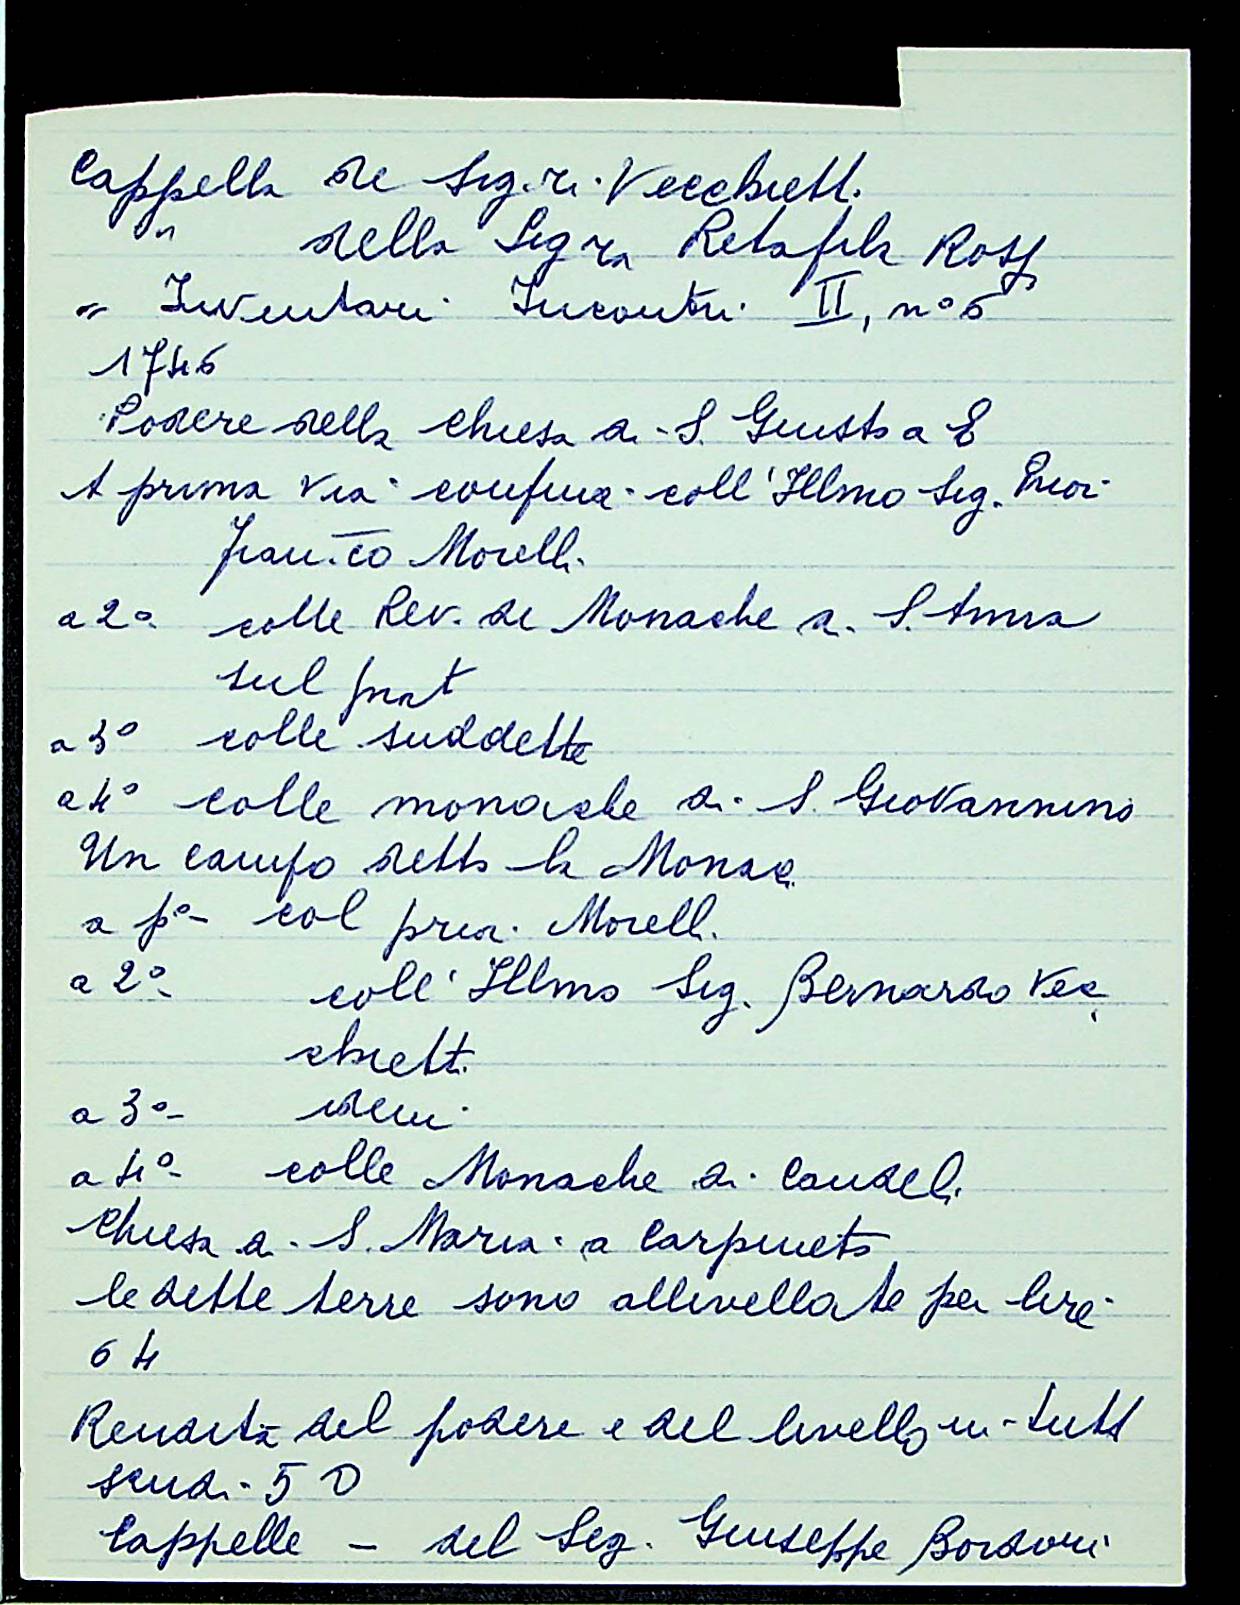 Cappella de Sig.ri Vecchietti
" della Sigra Rossi
" Inventari Incontri II, n° 6
1746
Podere della Chiesa di S. Giusto a E
A prima via confina coll'Illmo Sig. Prior
Fran.co Morelli
a 2° colle Rev. de Monache di S. Anna
sul prat
a 3° colle suddette
a 4° colle monache di S. Giovannino
Un campo detto la Monaca
a p° col prior Morelli
a 2° coll'Illmo Sig. Bernardo Vec
chietti
a 3° idem
a 4° colle Monache di Candeli
Chiesa di S. Maria a Carpineto
le dette terre sono allivellate per lire
64
Rendita del podere e del livello in tutt
scudi 50
Cappelle – del Sig. Giuseppe Bordoni